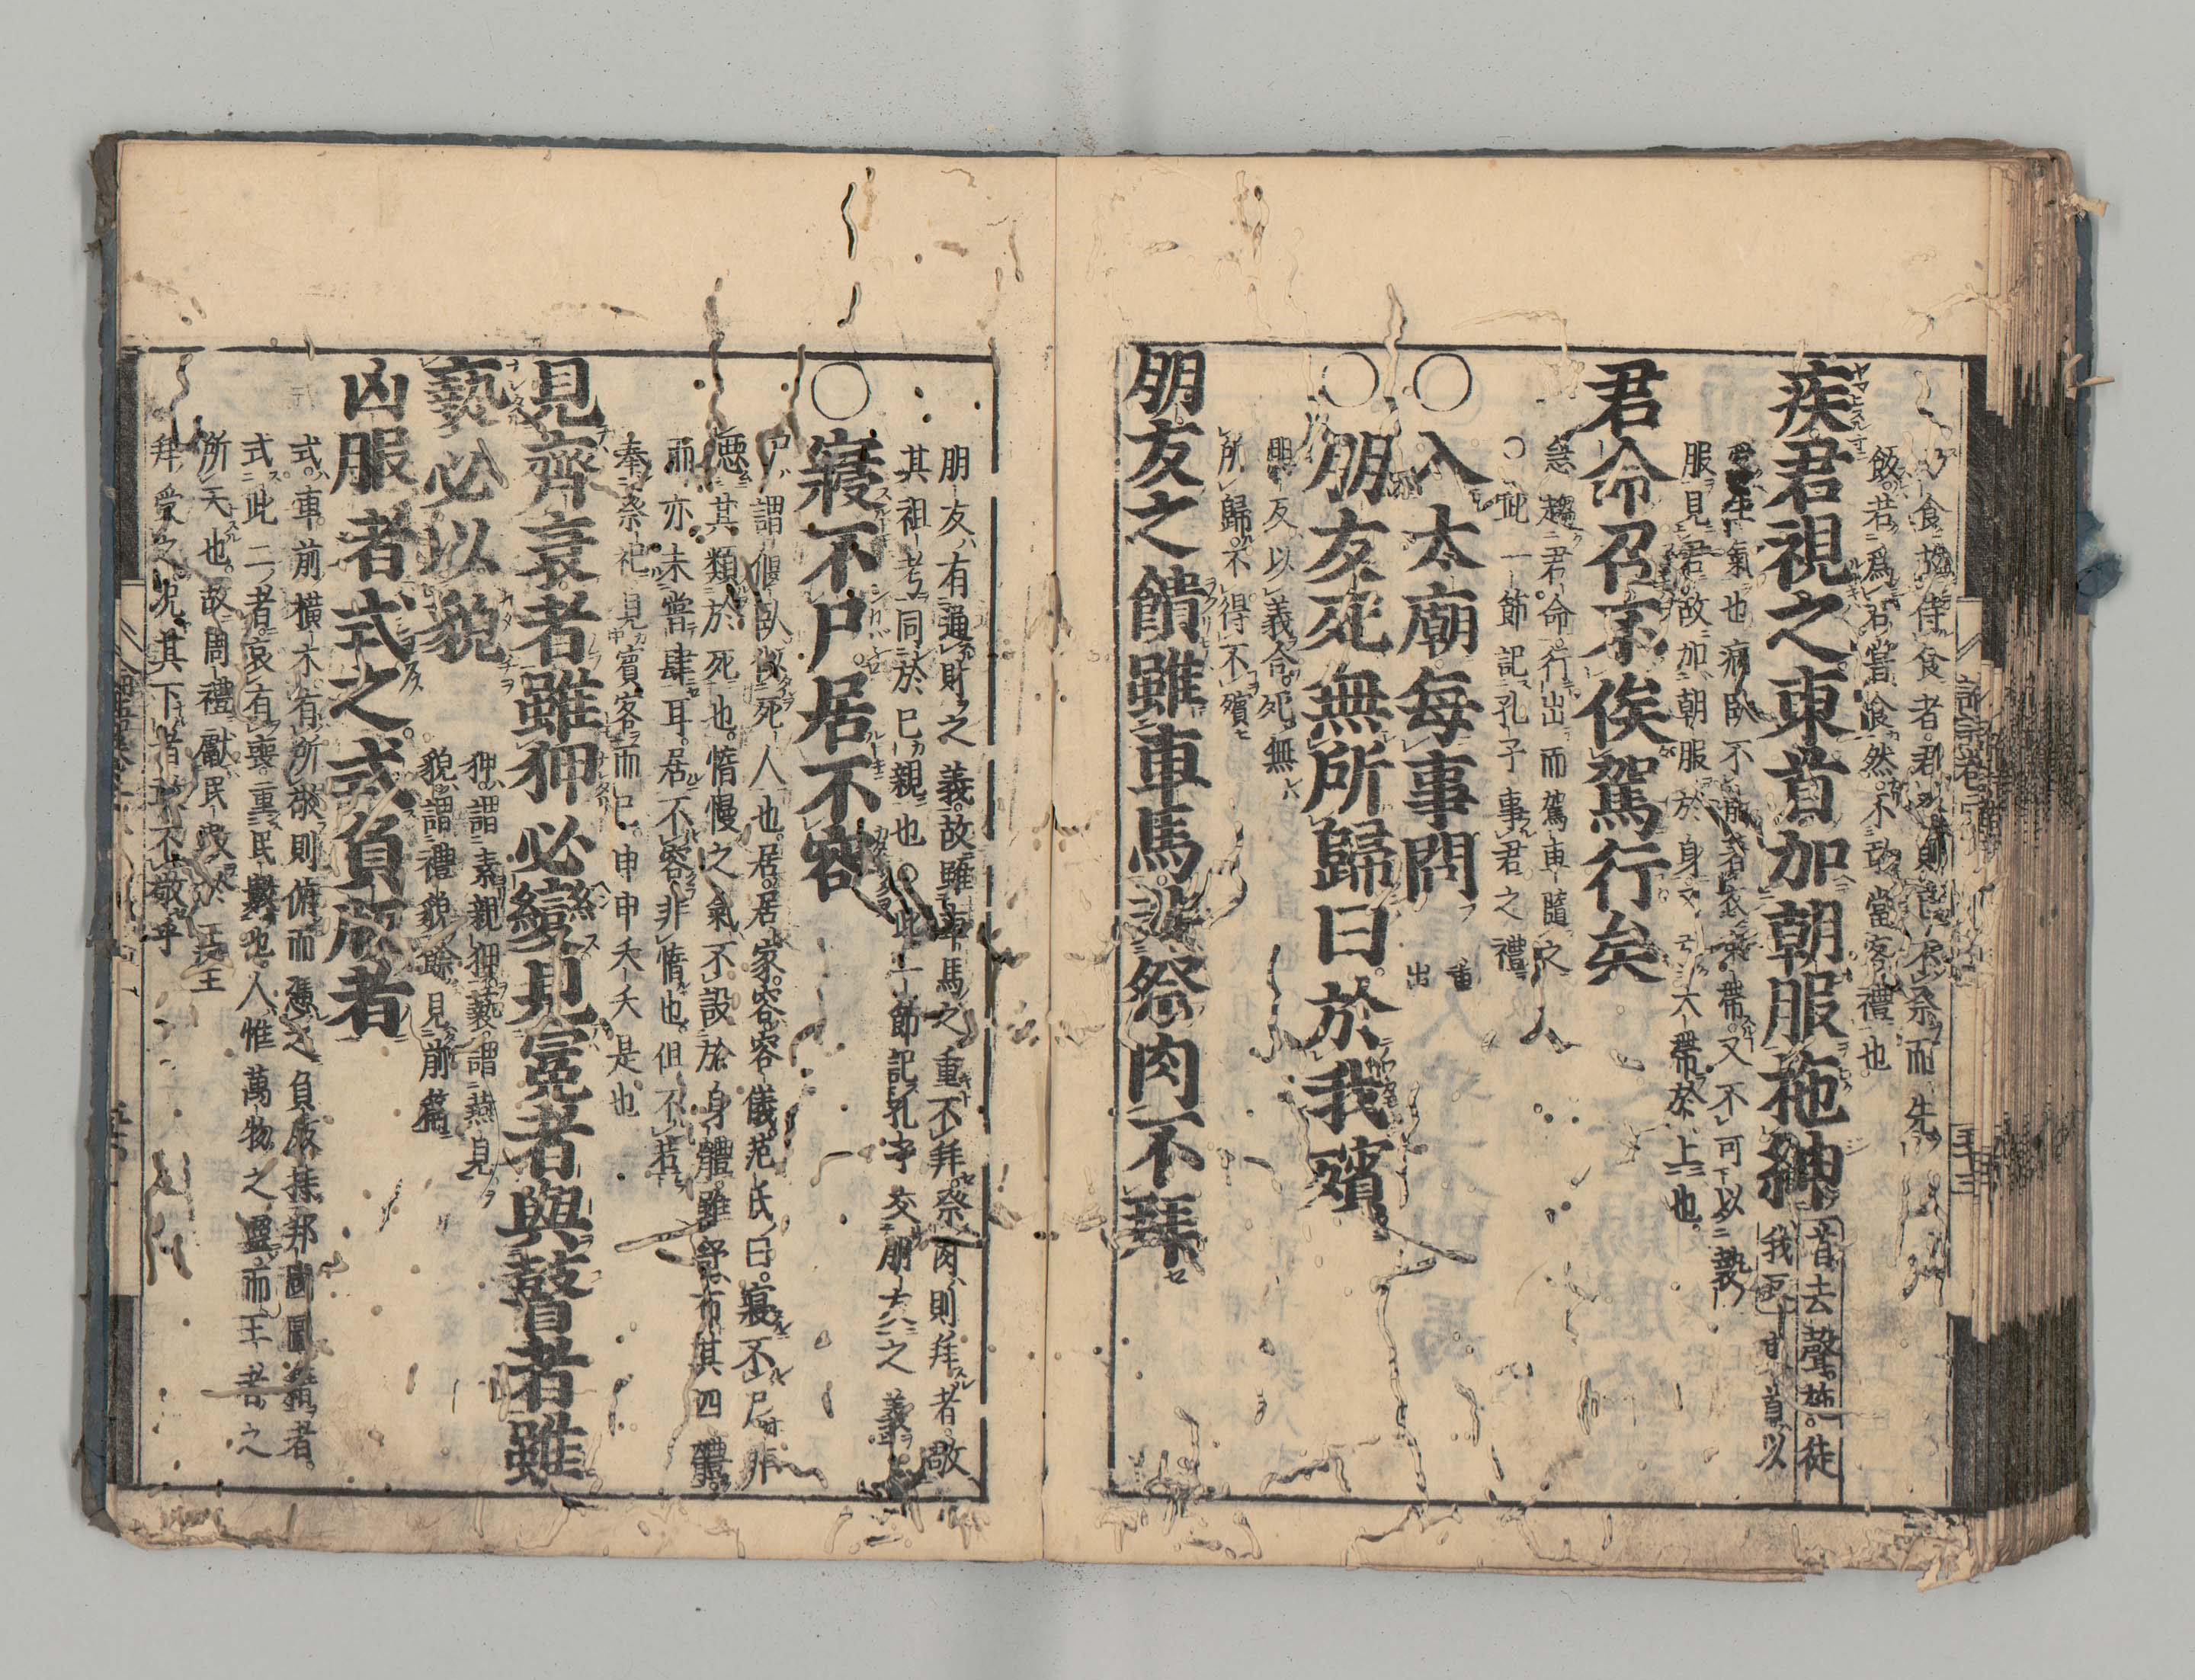 乃食故侍食者君祭則己不祭而先
飯若爲君嘗食然不敢當客禮也
疾君視之東首加朝服拖紳 首去聲拖徒
我反 首以
受生氣也病臥不能著衣束帶又不可以褻
服見君故加朝服於身又引大帶於上也
君命召不俟駕行矣
急趨君命行出而駕車隨之
○此一節記孔子事君之禮
○入太廟每事問 重出
○朋友死無所歸曰於我殯
朋友以義合死無
所歸不得不殯
朋友之饋雖車馬非祭肉不拜
朋友有通財之義故雖車馬之重不拜祭肉則拜者敬
其祖考同於己親也○此一節記孔子交朋友之義
○寢不尸居不容
尸謂偃臥似死人也居居家容容儀范氏曰寢不尸非
惡其類於死也惰慢之氣不設於身體雖舒布其四體
而亦未嘗肆耳居不容非惰也但不若
奉祭祀見賓客而已申申夭夭是也
見齊衰者雖狎必變見冕者與瞽者雖
褻必以貌
狎謂素親狎褻謂燕見
貌謂禮貌餘見前篇
凶服者式之式負版者
式車前橫木有所敬則俯而憑之負版持邦國圖籍者
式此二者哀有喪重民數也人惟萬物之靈而王者之
所天也故周禮獻民數於王王
拜受之況其下者敢不敬乎